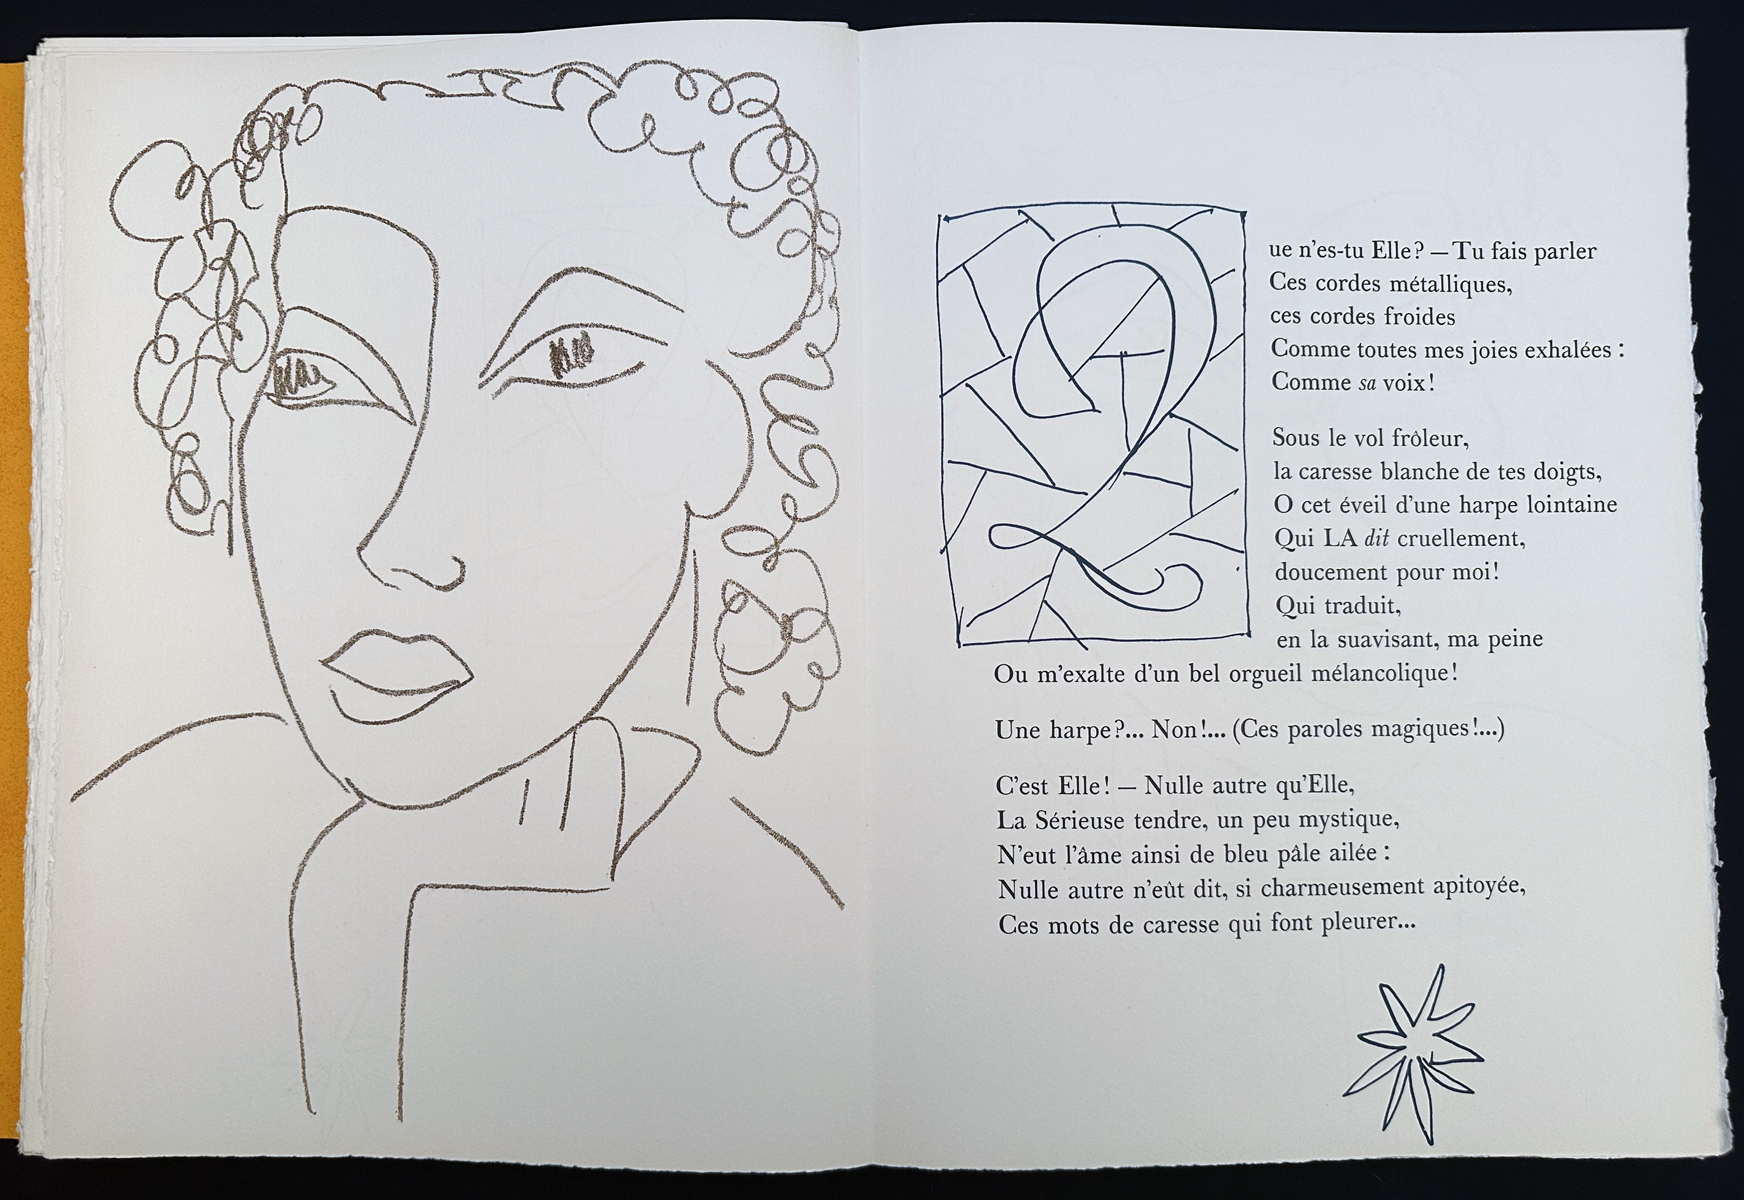 Que n'es-tu Elle? — Tu fais parler
Ces cordes métalliques,
ces cordes froides
Comme toutes mes joies exhalées :
Comme sa voix!
Sous le vol frôleur,
la caresse blanche de tes doigts,
O cet éveil d'une harpe lointaine
Qui LA dit cruellement,
doucement pour moi!
Qui traduit,
en la suavisant, ma peine
Ou m'exalte d'un bel orgueil mélancolique!
Une harpe?... Non!... (Ces paroles magiques!...)
C'est Elle! — Nulle autre qu'Elle,
La Sérieuse tendre, un peu mystique,
N'eut l'âme ainsi de bleu pâle ailée :
Nulle autre n'eût dit, si charmeusement apitoyée,
Ces mots de caresse qui font pleurer...